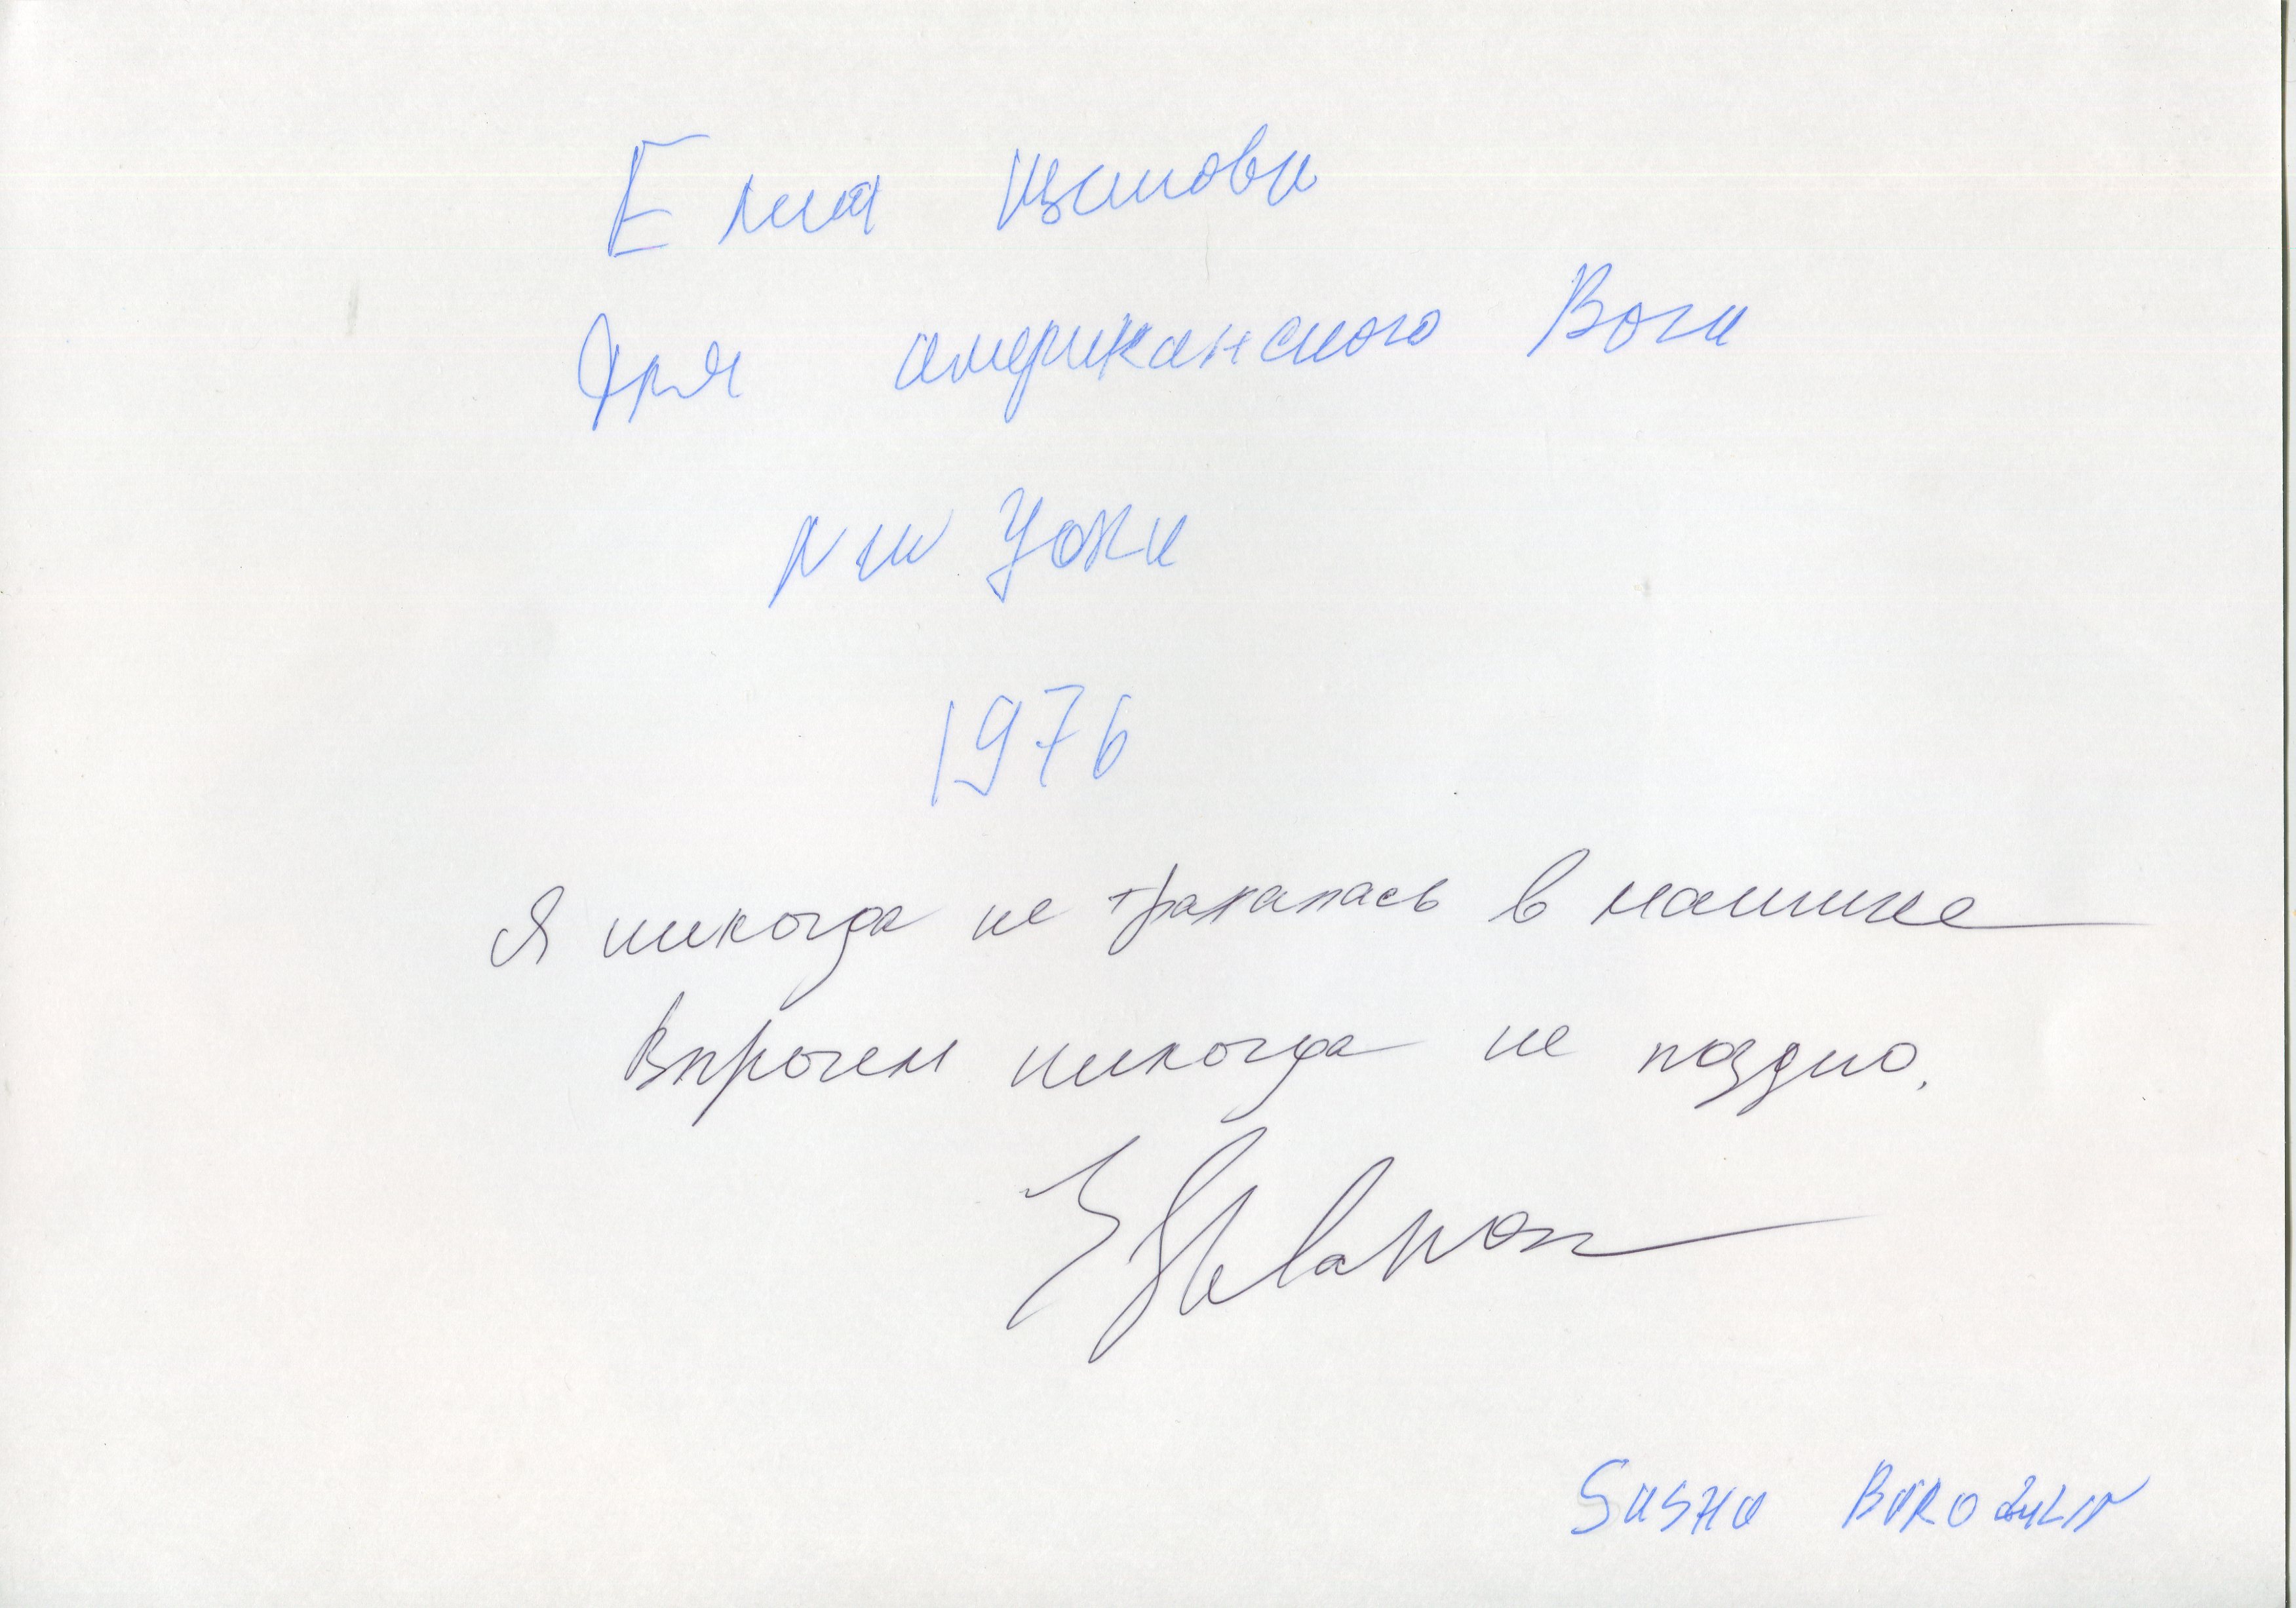 Для американского Вога
Нью Йорк
1976
Я никогда не трахалась в машине
Впрочем никогда не поздно.
SASHA BORODULIN